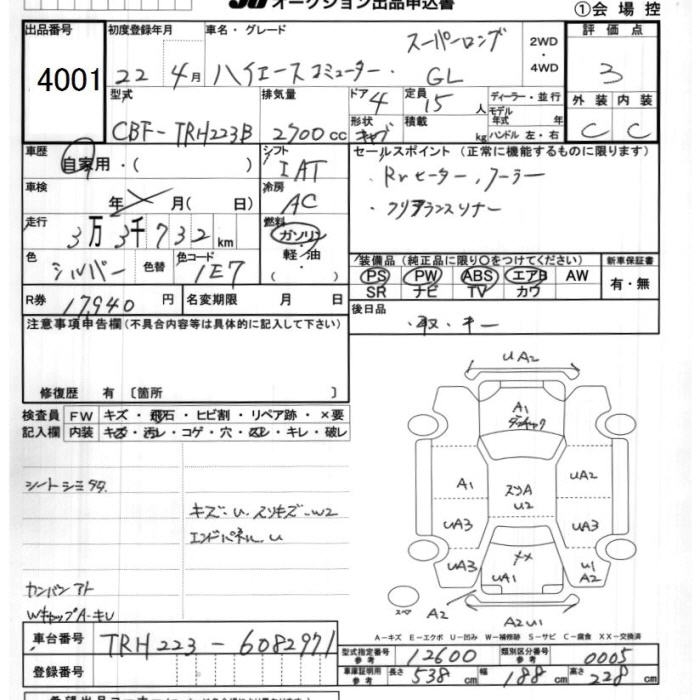 オークション出品申込書
①会場控
出品番号 4001
初度登録年月 22 4月
車名・グレード ハイエースコミューター・ スーパーロング GL
2WD ・ 4WD
評価点 3
型式 CBF-TRH223B
排気量 2700cc
ドア 4
定員 15人
ディーラー・並行
モデル年式 年
形状
積載 kg
ハンドル 左・右
外装 C
内装 C
車歴 自家用・( )
シフト IAT
セールスポイント(正常に機能するものに限ります)
・Rrヒーター,クーラー
・クリアランスソナー
車検 年 月( 日)
冷房 AC
走行 3万3千732km
燃料 ガソリン ・ 軽油 ・ ( )
色 シルバー
色替
色コード 1E7
装備品(純正品に限り○をつけてください)
新車保証書
PS PW ABS エアB AW
SR ナビ TV カワ
有・無
R券 17,940円
名変期限 月 日
後日品 ・取・キー
注意事項申告欄(不具合内容等は具体的に記入して下さい)
修復歴 有〔箇所 〕
検査員記入欄
FW キズ・飛石・ヒビ割・リペア跡・×要
内装 キズ・汚レ・コゲ・穴・スレ・キレ・破レ
シートシミ
キズ-U・スリキズ-W2
エンドパネルU
カンバンアト
WキャップA-キレ
UA2
A1
A1
スリA
U2
UA2
UA3
UA3
UA3
UA1
U1
A2
スペア
A2
A2U1
A-キズ E-エクボ U-凹み W-補修跡 S-サビ C-腐食 XX-交換済
車台番号 TRH223-6082971
型式指定番号 参考 12600
類別区分番号 参考 0005
登録番号
車庫証明 参考 長さ 538cm 幅 188cm 高さ 228cm